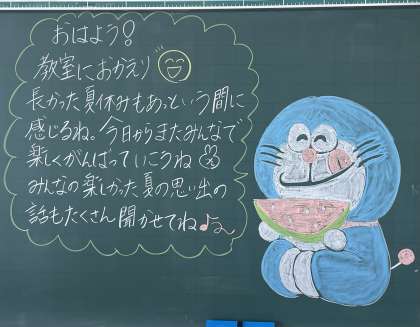 おはよう!
教室におかえり
長かった夏休みもあっという間に
感じるね。今日からまたみんなで
楽しくがんばっていこうね
みんなの楽しかった夏の思い出の
話もたくさん聞かせてね♪